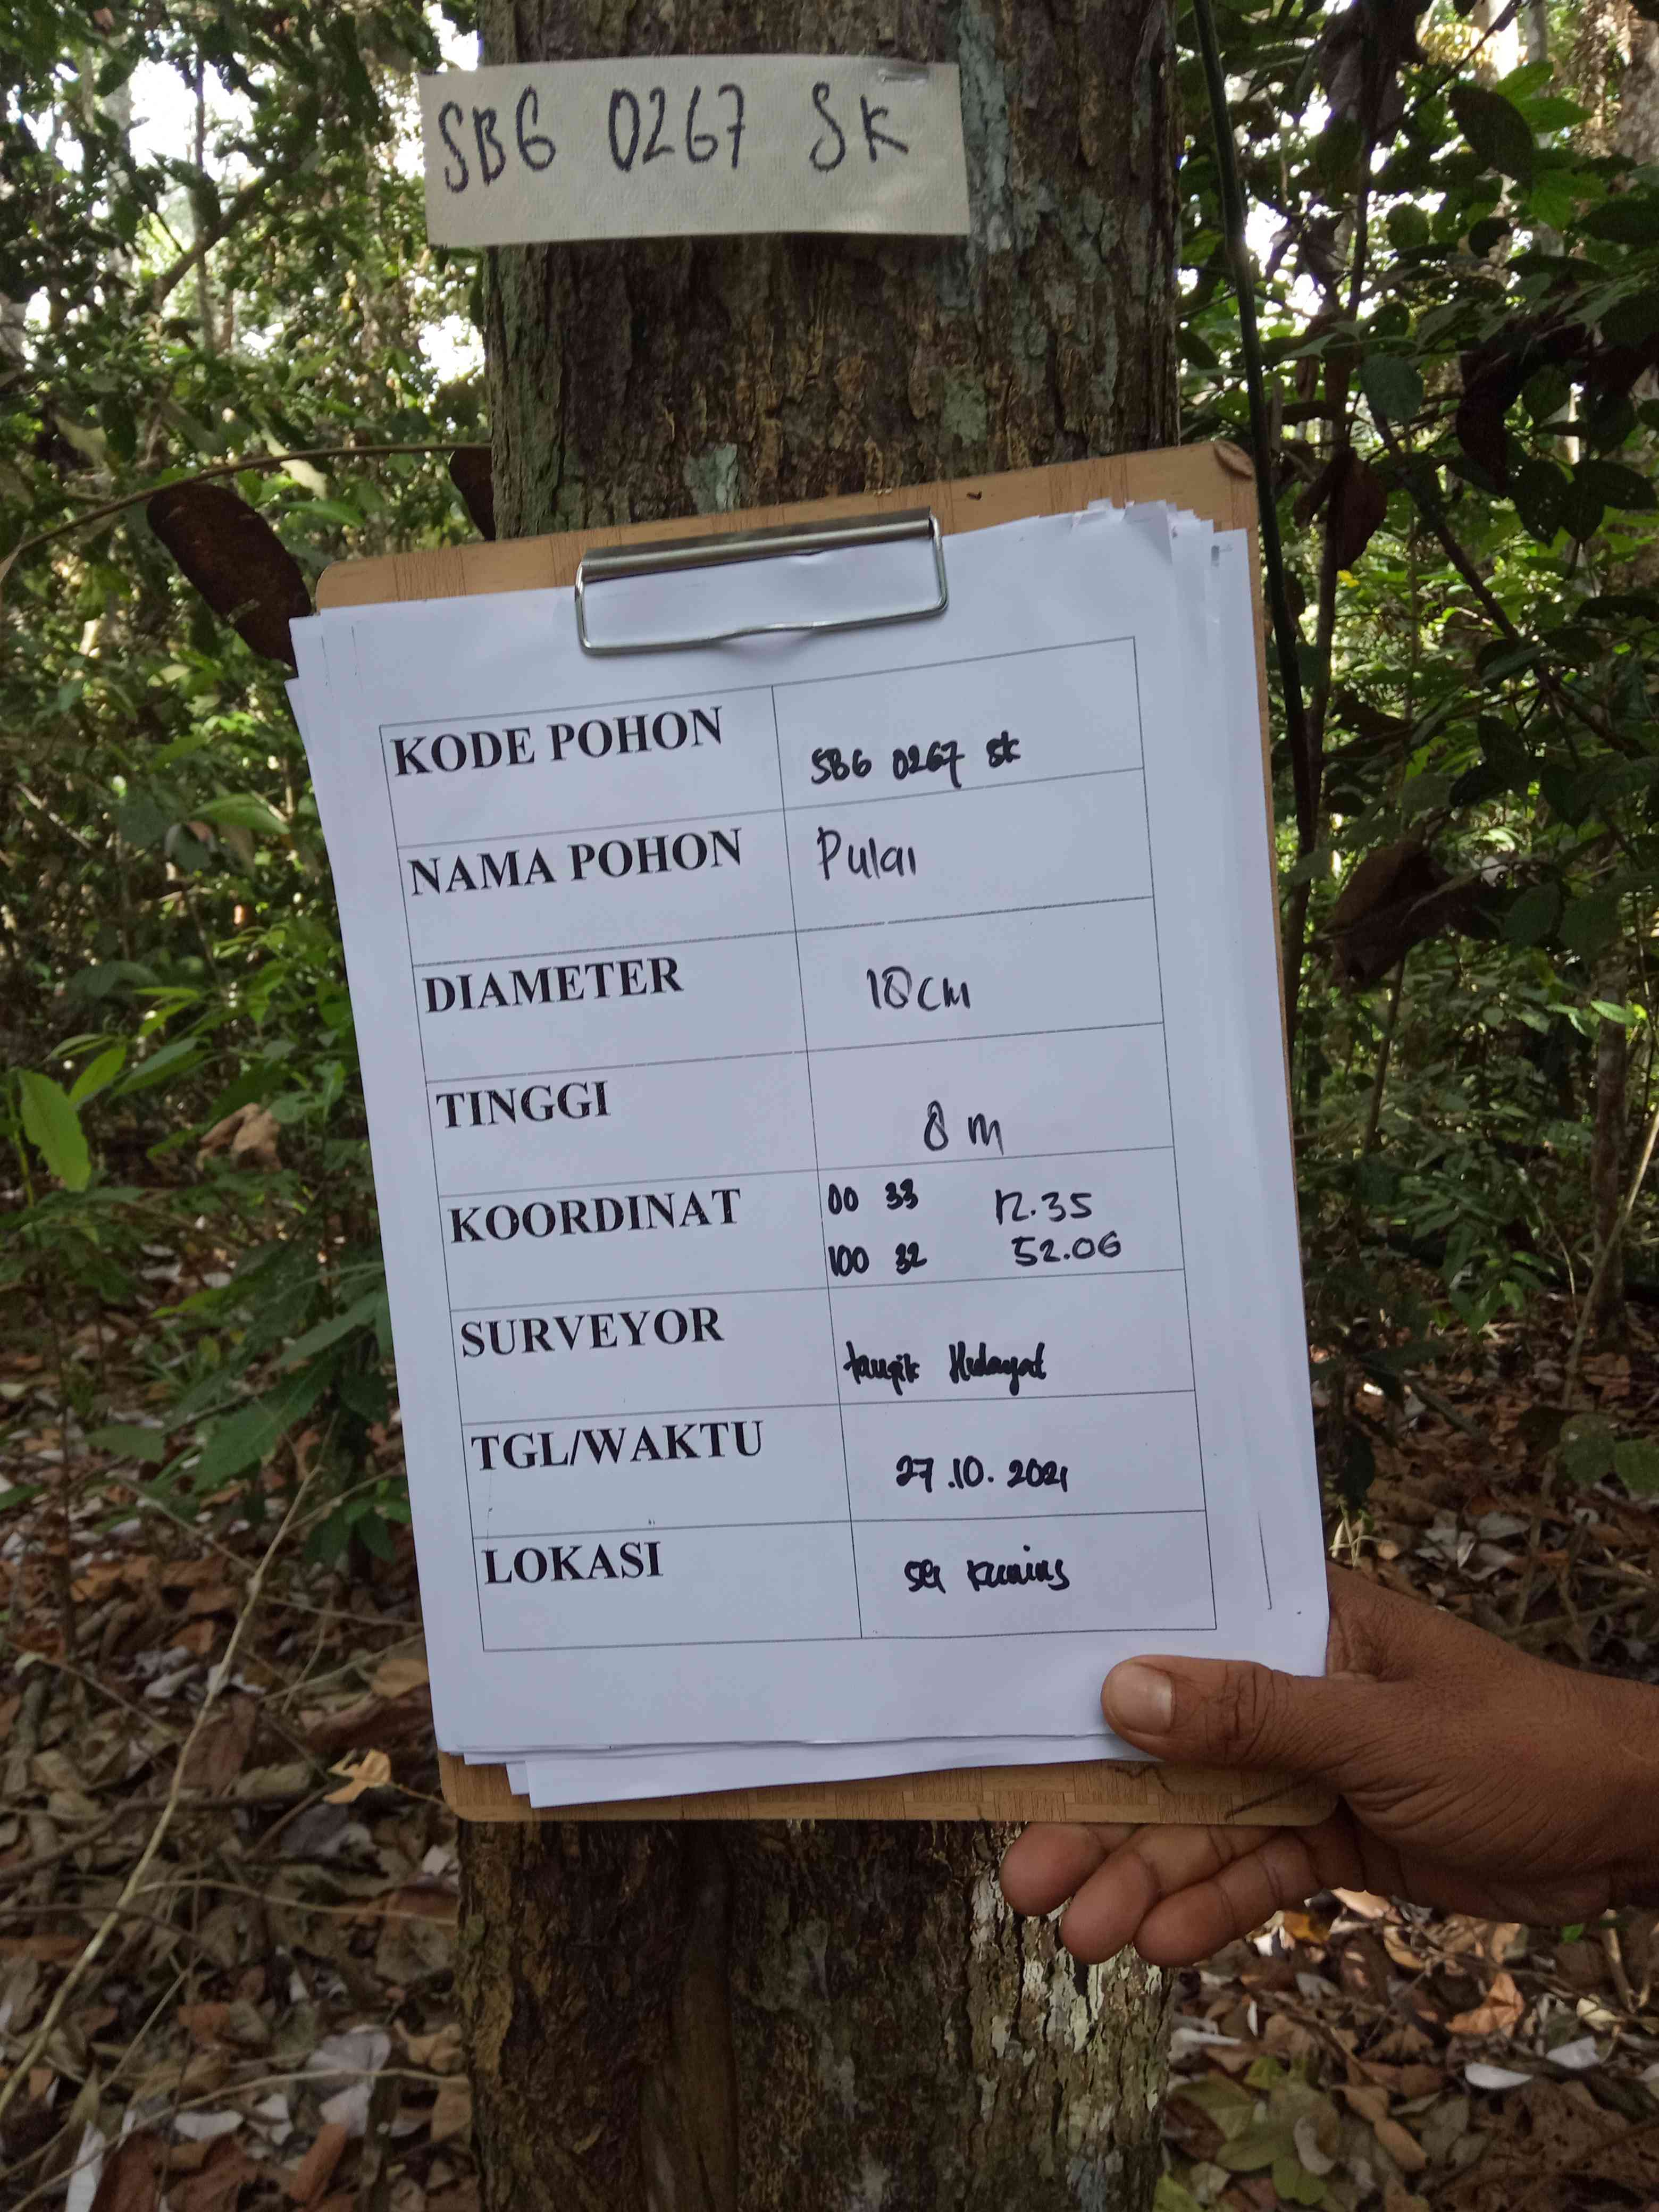 SBG 0267 SK
KODE POHON SBG 0267 SK
NAMA POHON Pulai
DIAMETER 18 cm
TINGGI 8 m
KOORDINAT 00 33 12.35
100 32 52.06
SURVEYOR taupik Hidayat
TGL/WAKTU 27.10.2021
LOKASI sei kuning